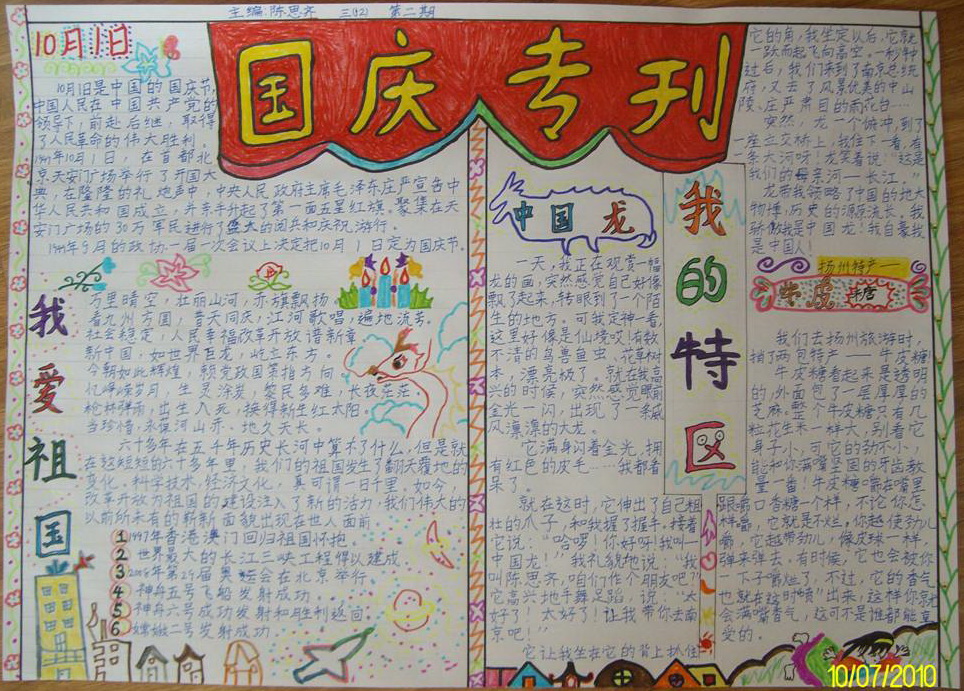 主编:陈思齐 三(12) 第二期
国庆专刊
10月1日
10月1日是中国的国庆节,
中国人民在中国共产党的
领导下,前赴后继,取得
了人民革命的伟大胜利.
1949年10月1日,在首都北
京天安门广场举行了开国大
典,在隆隆的礼炮声中,中央人民政府主席毛泽东庄严宣告中
华人民共和国成立,并亲手升起了第一面五星红旗。聚集在天
安门广场的30万军民进行了盛大的阅兵和庆祝游行。
1949年9月的政协一届一次会议上决定把10月1日定为国庆节.
我爱祖国
万里晴空,壮丽山河,赤旗飘扬.
看九州方圆,普天同庆,江河歌唱,遍地流芳.
社会稳定,人民幸福改革开放谱新章
新中国,如世界巨龙,屹立东方.
今朝如此辉煌,赖党政国策指方向
忆峥嵘岁月,生灵涂炭,黎民多难,长夜茫茫
枪林弹雨,出生入死,换得新生红太阳
当珍惜,永保河山开、地久天长.
六十多年在五千年历史长河中算不了什么,但是就
在这短短的六十多年里,我们的祖国发生了翻天覆地的
变化。科学技术,经济文化,真可谓一日千里。如今,
改革开放为祖国的建设注入了新的活力,我们伟大的
以前所未有的新面貌出现在世人面前
1 1997年香港澳门回归祖国怀抱.
2 世界最大的长江三峡工程得以建成
3 2008年第29届奥运会在北京举行
4 神舟五号飞船发射成功.
5 神舟六号成功发射和胜利返回
6 嫦娥二号发射成功
中国龙
一天,我正在观赏一幅
龙的画,突然感觉自己好像
飘了起来,转眼到了一个陌
生的地方。可我定神一看,
这里好像是仙境哎!有数
不清的鸟兽鱼虫、花草树
木,漂亮极了。就在我高
兴的时候,突然感觉眼前
金光一闪,出现了一条威
风凛凛的大龙。
它满身闪着金光,拥
有红色的皮毛……我都看
呆了。
就在这时,它伸出了自己粗
壮的爪子,和我握了握手,接着
它说:“哈啰!你好呀!我叫
中国龙!”我礼貌地说:“我
叫陈思齐,咱们作个朋友吧?”
它高兴地手舞足蹈,说:“太
好了!太好了!让我带你去南
京吧!”
它让我坐在它的背上,抓住
它的角,我坐定以后,它就
一跃而起飞向高空。一秒钟
过后,我们来到了南京总统
府,又去了风景优美的中山
陵、庄严肃目的雨花台……
突然,龙一个俯冲,到了
一座立交桥上,我往下一看,有
条大河呀!龙笑着说:“这是
我们的母亲河—长江。”
龙带我领略了中国的地大
物博,历史的源源流长。我
骄傲我是中国龙!我自豪我
是中国人!
我的特区
扬州特产——
牛皮糖
我们去扬州旅游时,
捎了两包特产——牛皮糖
牛皮糖看起来是透明
的,外面包了一层厚厚的
芝麻.整个牛皮糖只有几
粒花生米一样大,别看它
身子小,可它的劲不小,
能和你满嘴坚固的牙齿较
量一番!牛皮糖口嚼在嘴里
跟嚼口香糖一个样,不论你怎
样嚼,它就是不烂。你越使劲儿
嚼,它越带劲儿,像皮球一样,
弹来弹去,有时候,它也会被你
一下子嚼烂了,不过,它的香气
也就在这时“喷”出来,这样你就
会满嘴香气,这可不是谁都能享
受的.
10/07/2010